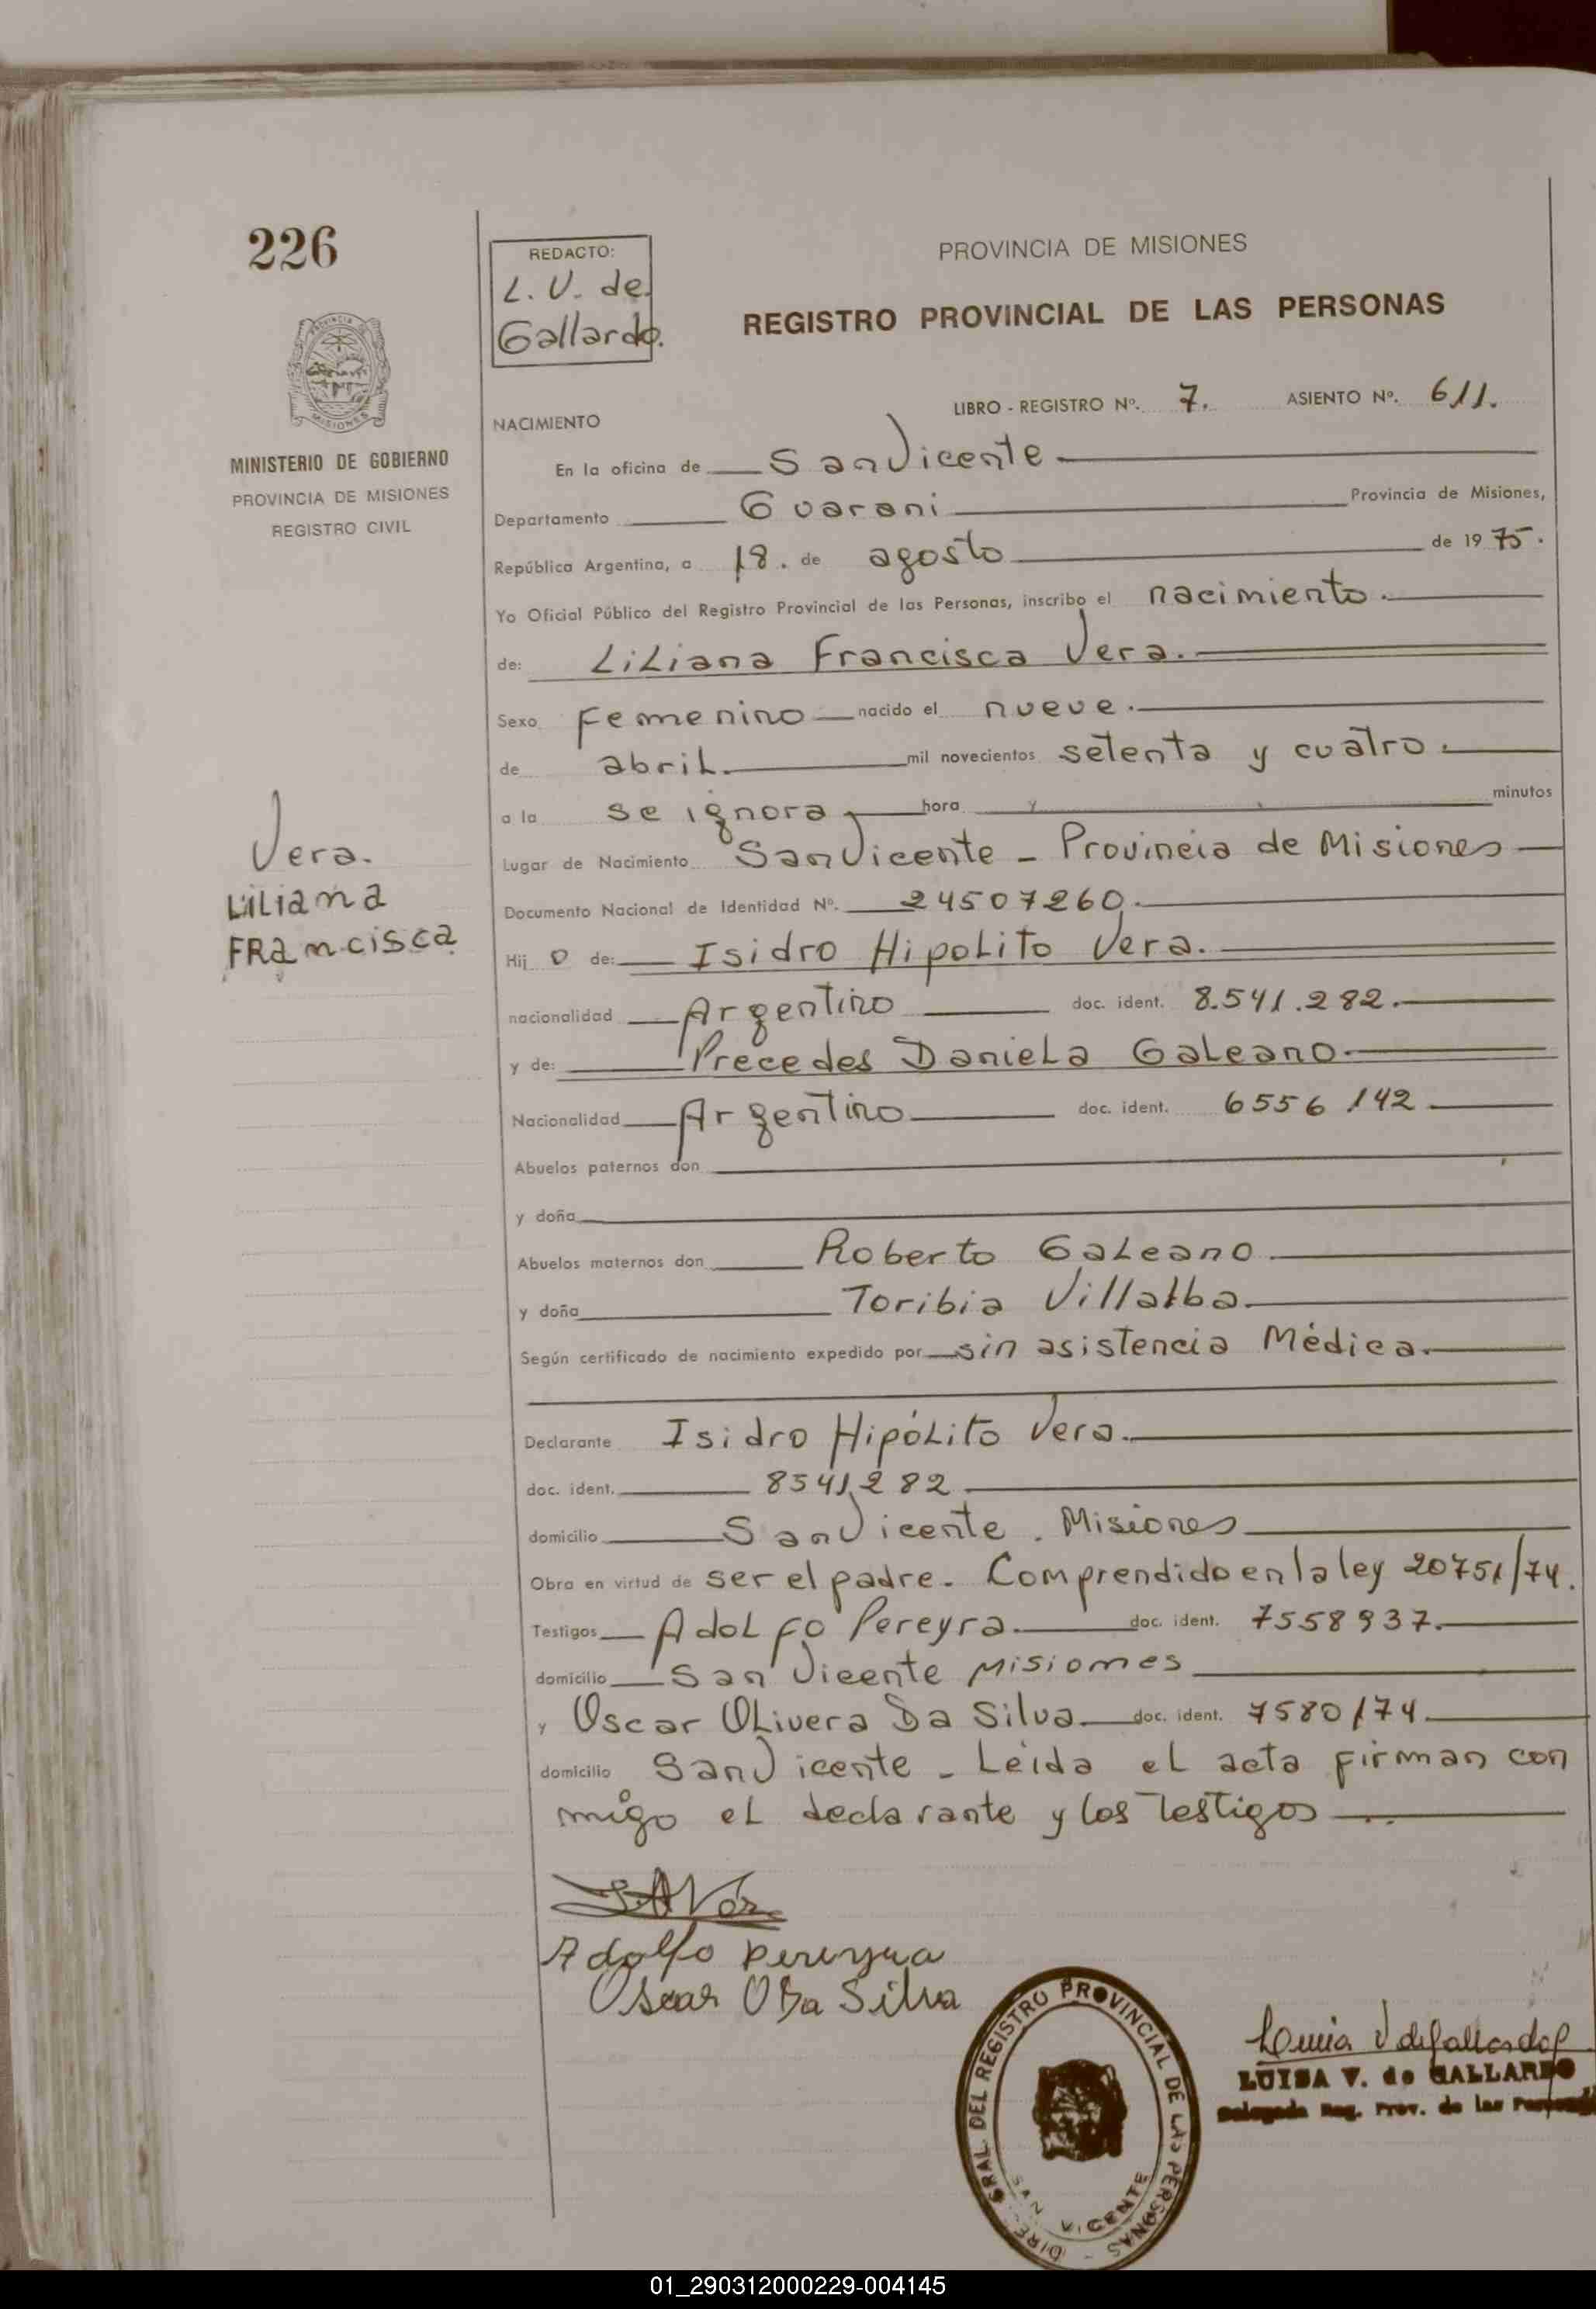 226
REDACTO:
L. V. de
Gallardo.
PROVINCIA DE MISIONES
REGISTRO PROVINCIAL DE LAS PERSONAS
PROVINCIA DE
MISIONES
MINISTERIO DE GOBIERNO
PROVINCIA DE MISIONES
REGISTRO CIVIL
LIBRO - REGISTRO Nº. 7. ASIENTO Nº. 611.
NACIMIENTO
En la oficina de San Vicente
Departamento Guarani Provincia de Misiones,
República Argentina, a 18. de agosto de 1975.
Yo Oficial Público del Registro Provincial de las Personas, inscribo el nacimiento.
de: Liliana Francisca Vera.
Sexo Femenino nacido el nueve.
de abril. mil novecientos setenta y cuatro.
a la se ignora hora y minutos
Lugar de Nacimiento San Vicente - Provincia de Misiones
Documento Nacional de Identidad Nº. 24507260.
Vera.
Liliana
FRancisca
Hij o de: Isidro Hipolito Vera.
nacionalidad Argentino doc. ident. 8.541.282.
y de: Precedes Daniela Galeano.
Nacionalidad Argentino doc. ident. 6556142
Abuelos paternos don
y doña
Abuelos maternos don Roberto Galeano
y doña Toribia Villalba
Según certificado de nacimiento expedido por sin asistencia Médica.
Declarante Isidro Hipólito Vera.
doc. ident. 8541282
domicilio San Vicente. Misiones
Obra en virtud de ser el padre. Comprendido en la ley 20751/74.
Testigos Adolfo Pereyra doc. ident. 7558937.
domicilio San Vicente Misiones
y Oscar Olivera Da Silva doc. ident. 7580174
domicilio San Vicente - Leida el acta firman con
migo el declarante y los Testigos
Adolfo Pereyra
Oscar O Da Silva
DIRE. GRAL. DEL REGISTRO PROVINCIAL DE LAS PERSONAS -
SAN VICENTE
Luisa V de Gallardo
LUISA V. de GALLARDO
Delegada Reg. Prov. de las Personas
01_290312000229-004145